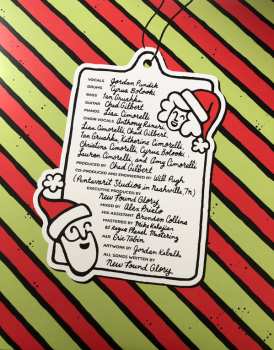 VOCALS Jordan Pundik
DRUMS Cyrus Bolooki
BASS Ian Grushka
GUITAR Chad Gilbert
PIANOS Lisa Cimorelli
CHOIR VOCALS Anthony Raneri,
Lisa Cimorelli, Chad Gilbert,
Ian Grushka, Katherine Cimorelli,
Christina Cimorelli, Cyrus Bolooki
Lauren Cimorelli, and Amy Cimorelli
PRODUCED BY Chad Gilbert
CO-PRODUCED AND ENGINEERED BY Will Pugh
(Pentavarit Studios in Nashville, TN)
EXECUTIVE PRODUCED BY
New Found Glory
MIXED BY Alex Prieto
MIX ASSISTANT Brandon Collins
MASTERED BY Mike Kalajian
at Rogue Planet Mastering
A&R Eric Tobin
ARTWORK BY Jordan
ALL SONGS WRITTEN BY
New Found Glory